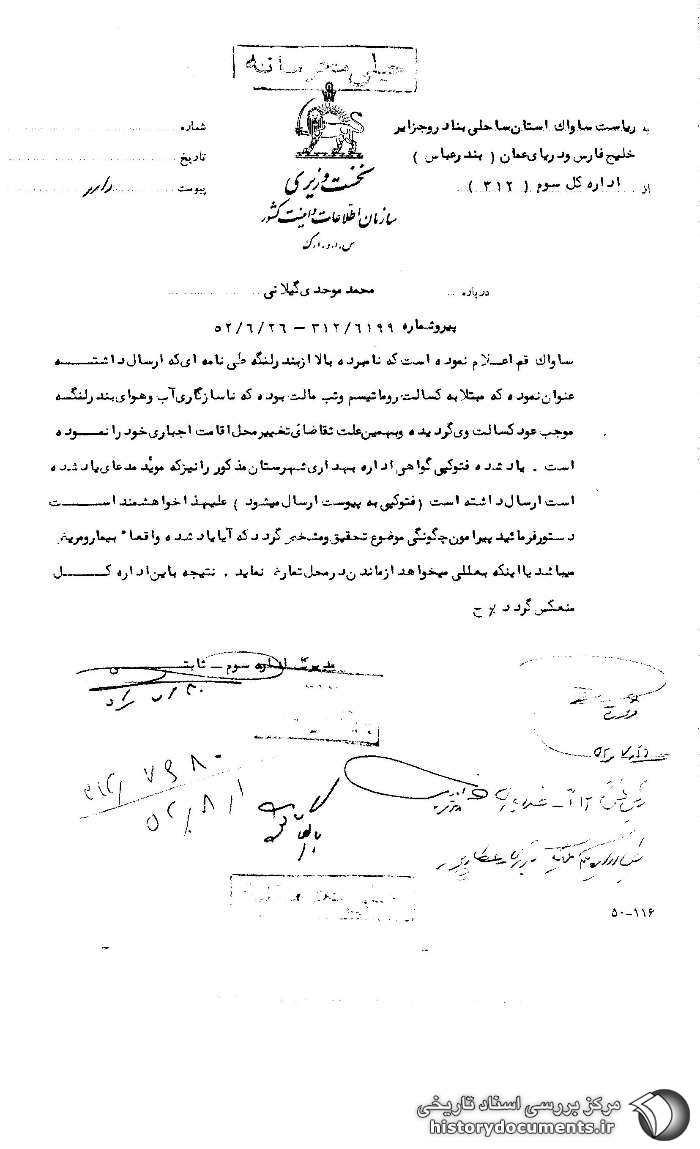 خیلی محرمانه
به ریاست ساواك استان ساحلی بنادر و جزایر
شماره
خلیج فارس و دریای عمان ( بندرعباس )
تاریخ
از اداره کل سوم ( ۳۱۲ )
پیوست دارد
نخست وزیری
سازمان اطلاعات و امنیت کشور
س.ا.و.ا.ک
درباره محمد موحدی گیلانی
پیرو شماره ۳۱۲/۶۱۹۹ – ۵۲/۶/۲۶
ساواك قم اعلام نموده است که نامبرده بالا از بندرلنگه طی نامه ای که ارسال داشته
عنوان نموده که مبتلا به کسالت روماتیسم وتب مالت بوده که ناسازگاری آب وهوای بندرلنگه
موجب عود کسالت وی گردیده وبهمین علت تقاضای تغییر محل اقامت اجباری خود را نموده
است . یاد شده فتوکپی گواهی اداره بهداری شهرستان مذکور را نیز که موید مدعای یاد شده
است ارسال داشته است (فتوکپی به پیوست ارسال میشود ) علیهذا خواهشمند است
دستور فرمائید پیرامون چگونگی موضوع تحقیق ومشخص گردد که آیا یاد شده واقعا" بیمار ومریض
میباشد یا اینکه بعللی میخواهد از ماندن در محل تمارض نماید . نتیجه باین اداره کل
منعکس گردد ٪ ح
مدیرکل اداره سوم – ثابتی
۳۱۲/۷۹۸۰
۵۲/۸/۱
۵۰-۱۱۶
مرکز بررسی اسناد تاریخی
historydocuments.ir